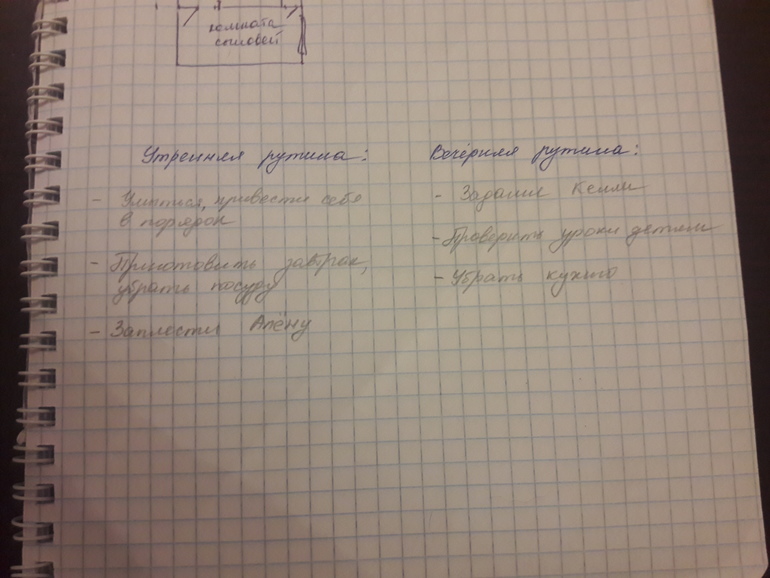 комната
сыновей
Утренняя рутина:
- Умыться, привести себя
в порядок
- Приготовить завтрак,
убрать посуду
- Заплести Алёну
Вечерняя рутина:
- Задания Келли
- Проверить уроки детям
- Убрать кухню